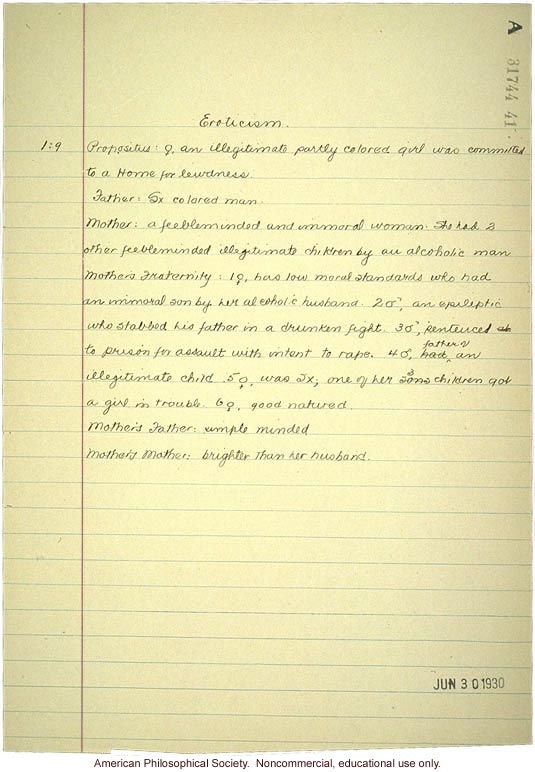 A 31744 41.
Eroticism.
1:9 Propositus: ♀, an illegitimate partly colored girl was committed
to a Home for lewdness.
Father: Sx colored man.
Mother: a feebleminded and immoral woman. She had 2
other feebleminded illegitimate children by an alcoholic man
Mother's Fraternity: 1♀, has low moral standards who had
an immoral son by her alcoholic husband. 2♂, an epileptic
who stabbed his father in a drunken fight. 3♂, sentenced
to prison for assault with intent to rape. 4♂, had father of an
illegitimate child. 5♀, was Sx, one of her sons children got
a girl in trouble. 6♀, good natured.
Mother's Father: simple minded
Mother's Mother: brighter than her husband.
JUN 30 1930
American Philosophical Society. Noncommercial, educational use only.